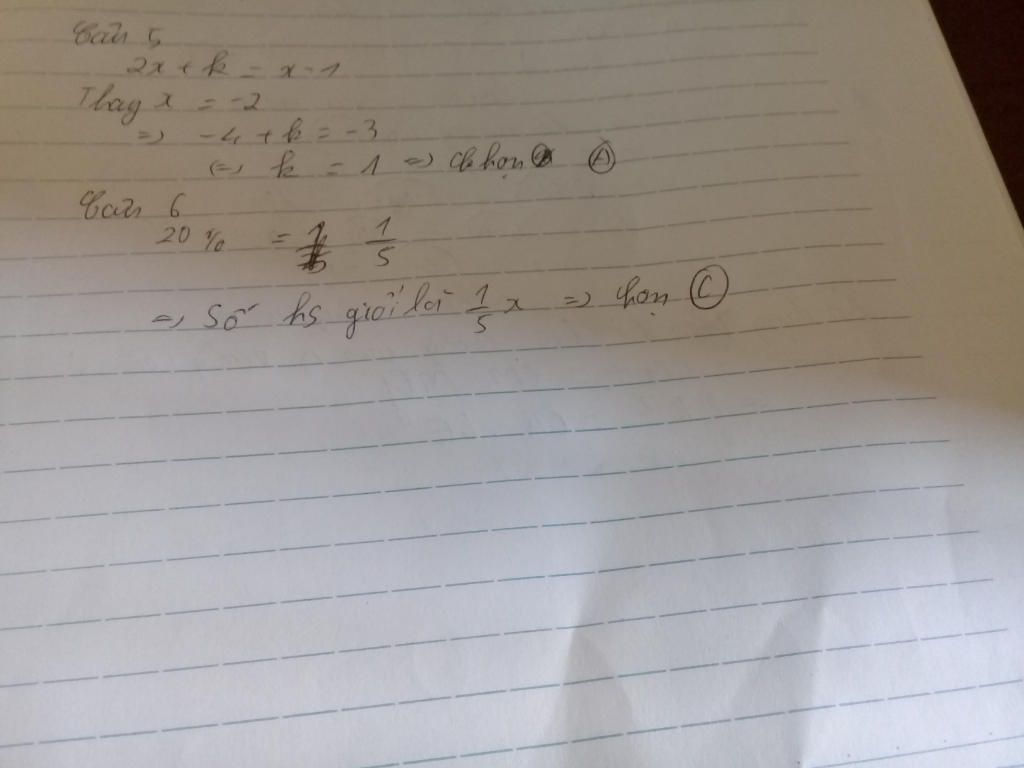 Câu 5
2x + k = x - 1
Thay x = -2
=> -4 + k = -3
<=> k = 1 => chọn A
Câu 6
20 % = 1/5
=> Số hs giỏi là 1/5 x => chọn C